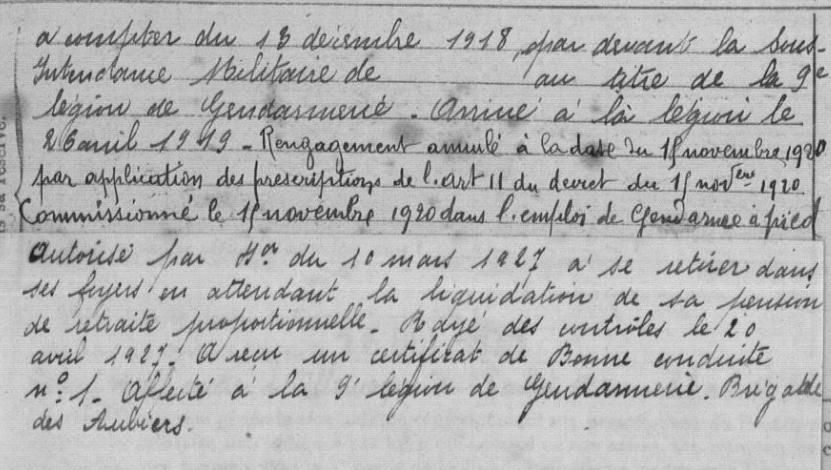 a compter du 13 décembre 1918, par devant la Sous-
Intendance Militaire de au titre de la 9e
légion de Gendarmerie. Arrivé à la légion le
26 avril 1919 - Rengagement annulé à la date du 15 novembre 1920
par application des prescriptions de l'art 11 du décret du 15 novbre 1920.
Commissionné le 15 novembre 1920 dans l'emploi de Gendarme à pied
Autorisé par du 10 mars 1927 à se retirer dans
ses foyers en attendant la liquidation de sa pension
de retraite proportionnelle. Rayé des contrôles le 20
avril 1927. A reçu un certificat de Bonne conduite
n° 1. Affecté à la 9e légion de Gendarmerie. Brigade
des Aubiers.